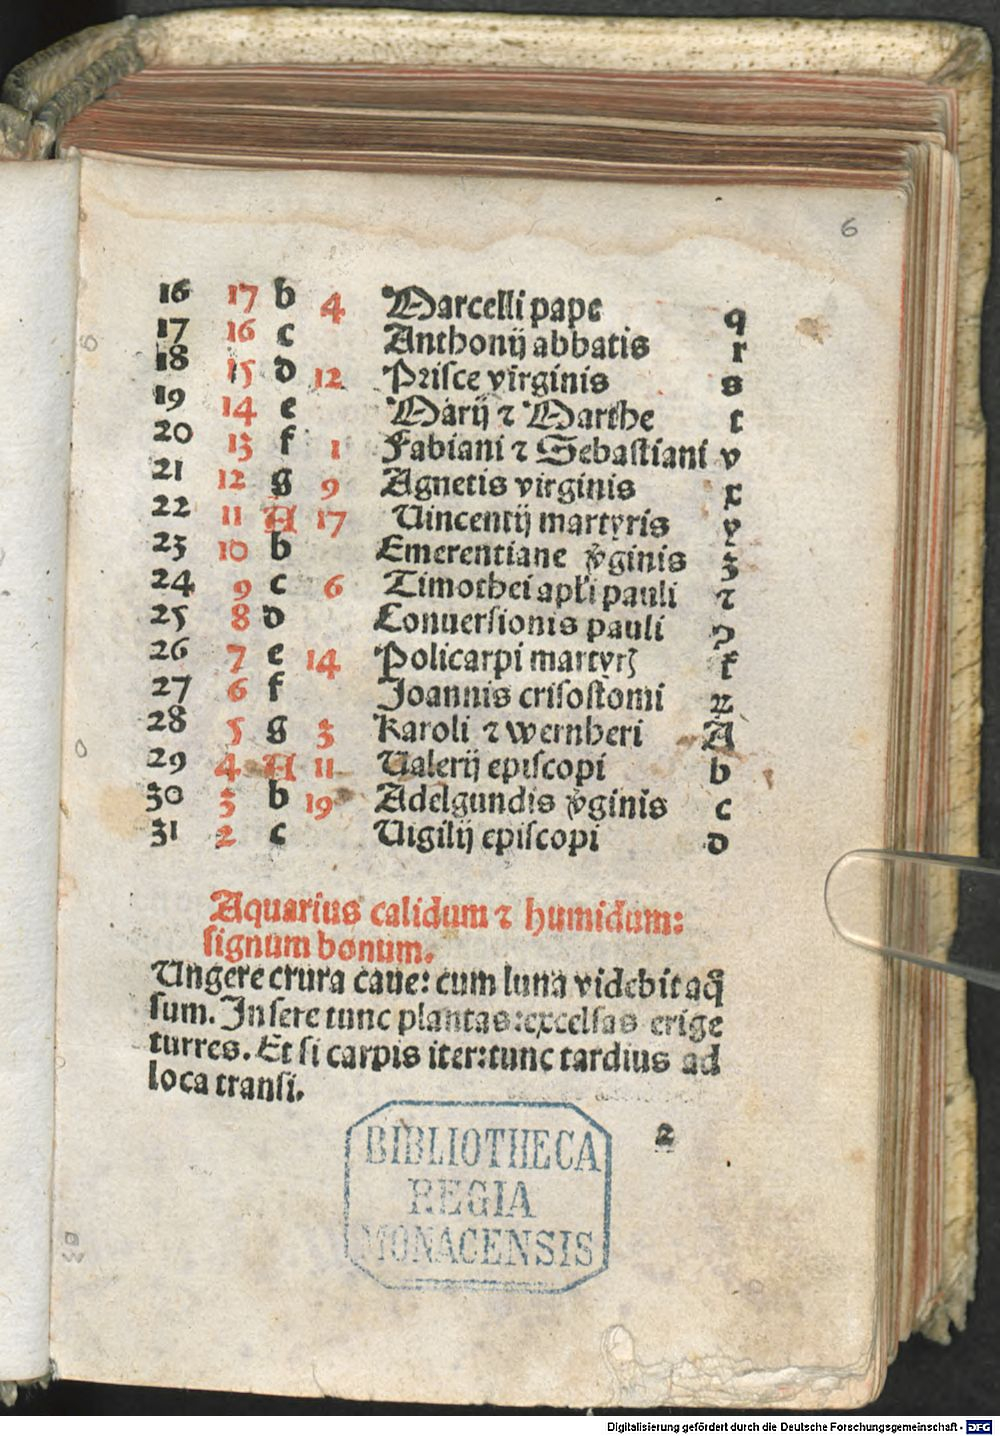 6
16 17 b 4 Marcelli pape q
17 16 c Anthonij abbatis r
18 15 d 12 Prisce virginis s
19 14 e Marij ⁊ Marthe t
20 13 f 1 Fabiani ⁊ Sebastiani v
21 12 g 9 Agnetis virginis x
22 11 A 17 Uincentij martyris y
23 10 b Emerentiane v̾ginis z
24 9 c 6 Timothei apl'i pauli ⁊
25 8 d Conuersionis pauli ꝯ
26 7 e 14 Policarpi martyrꝭ
27 6 f Joannis crisostomi
28 5 g 3 Karoli ⁊ wernheri A
29 4 A 11 Ualerij episcopi b
30 3 b 19 Adelgundis v̾ginis c
31 2 c Uigilij episcopi d
Aquarius calidum ⁊ humidum:
signum bonum.
Ungere crura caue: cum luna videbit aq̄
sum. Insere tunc plantas: excelsas erige
turres. Et si carpis iter: tunc tardius ad
loca transi.
2
BIBLIOTHECA
REGIA
MONACENSIS
Digitalisierung gefördert durch die Deutsche Forschungsgemeinschaft - DFG